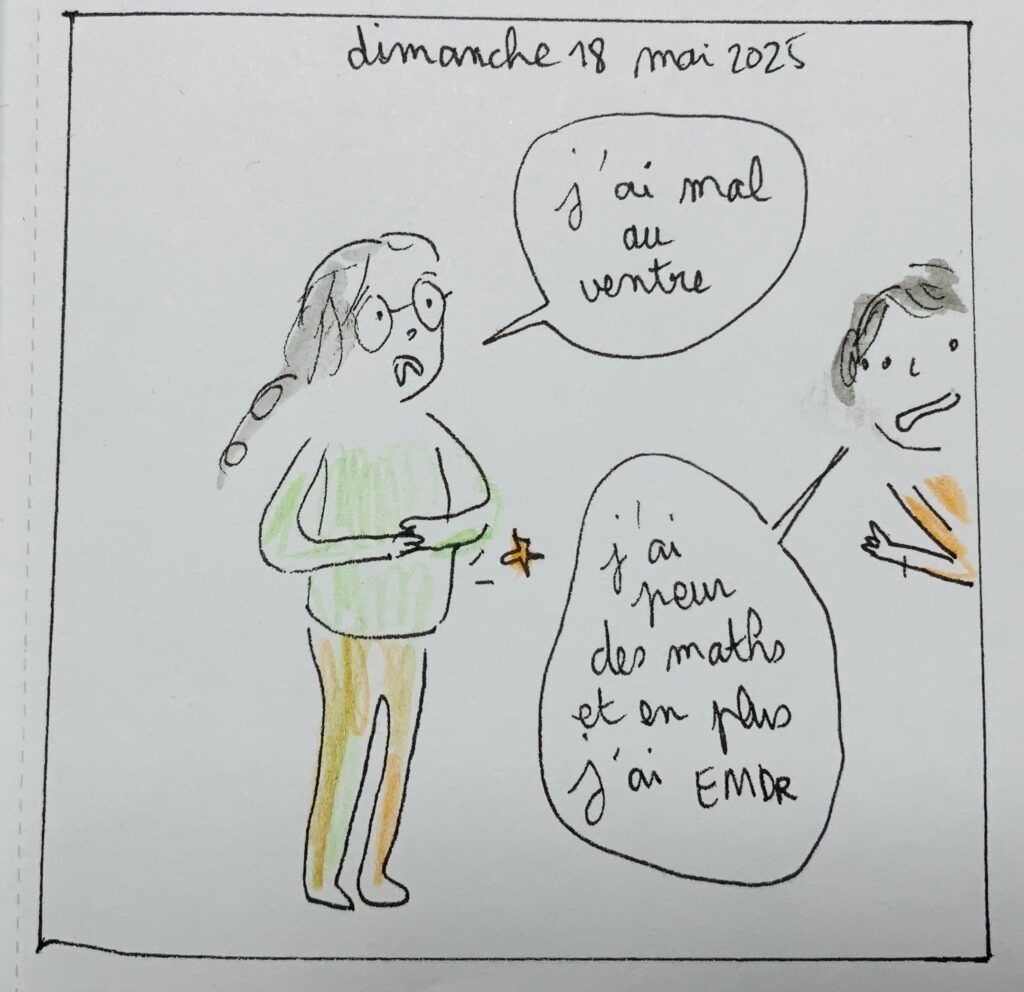 dimanche 18 mai 2025
j'ai mal
au
ventre
j'ai
peur
des maths
et en plus
j'ai EMDR